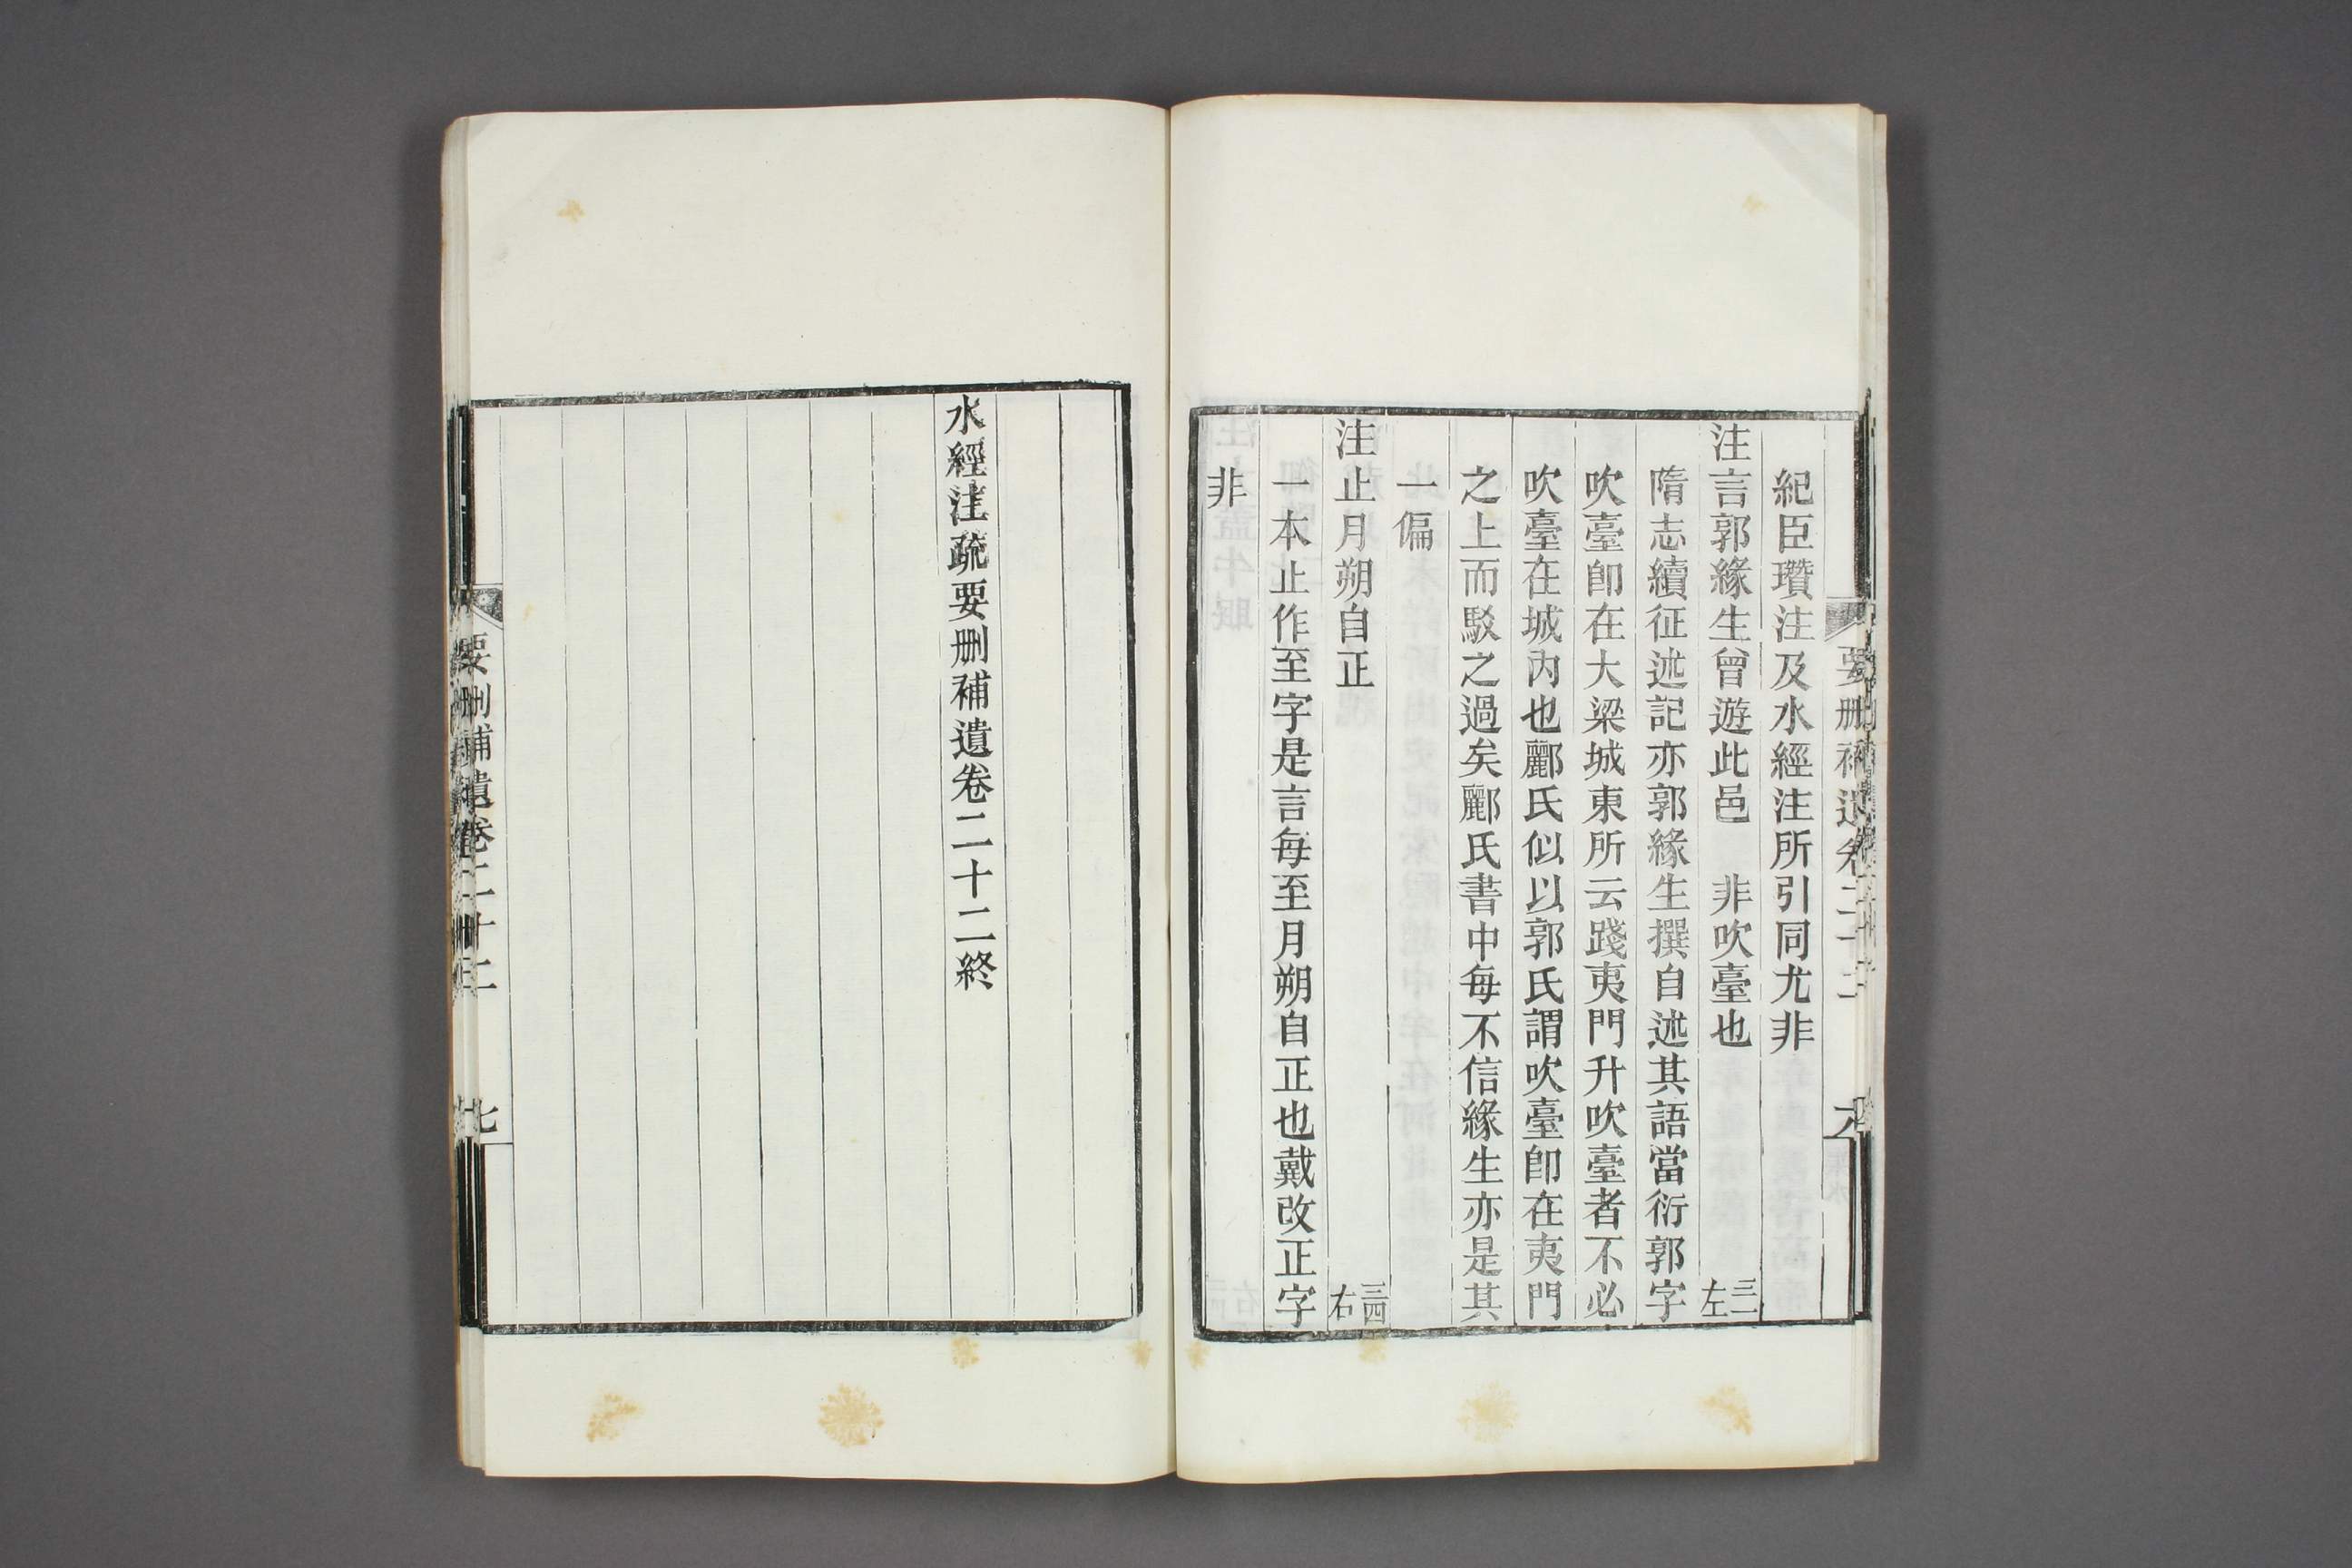 紀臣瓚注及水經注所引同尤非
注言郭緣生曾遊此邑　非吹臺也　三一左
隋志續征述記亦郭緣生撰自述其語當衍郭字
吹臺卽在大梁城東所云踐夷門升吹臺者不必
吹臺在城內也酈氏似以郭氏謂吹臺卽在夷門
之上而駁之過矣酈氏書中每不信緣生亦是其
一偏
注止月朔自正　三四右
一本止作至字是言每至月朔自正也戴改正字
非
水經注疏要刪補遺卷二十二終
要刪補遺卷二十二